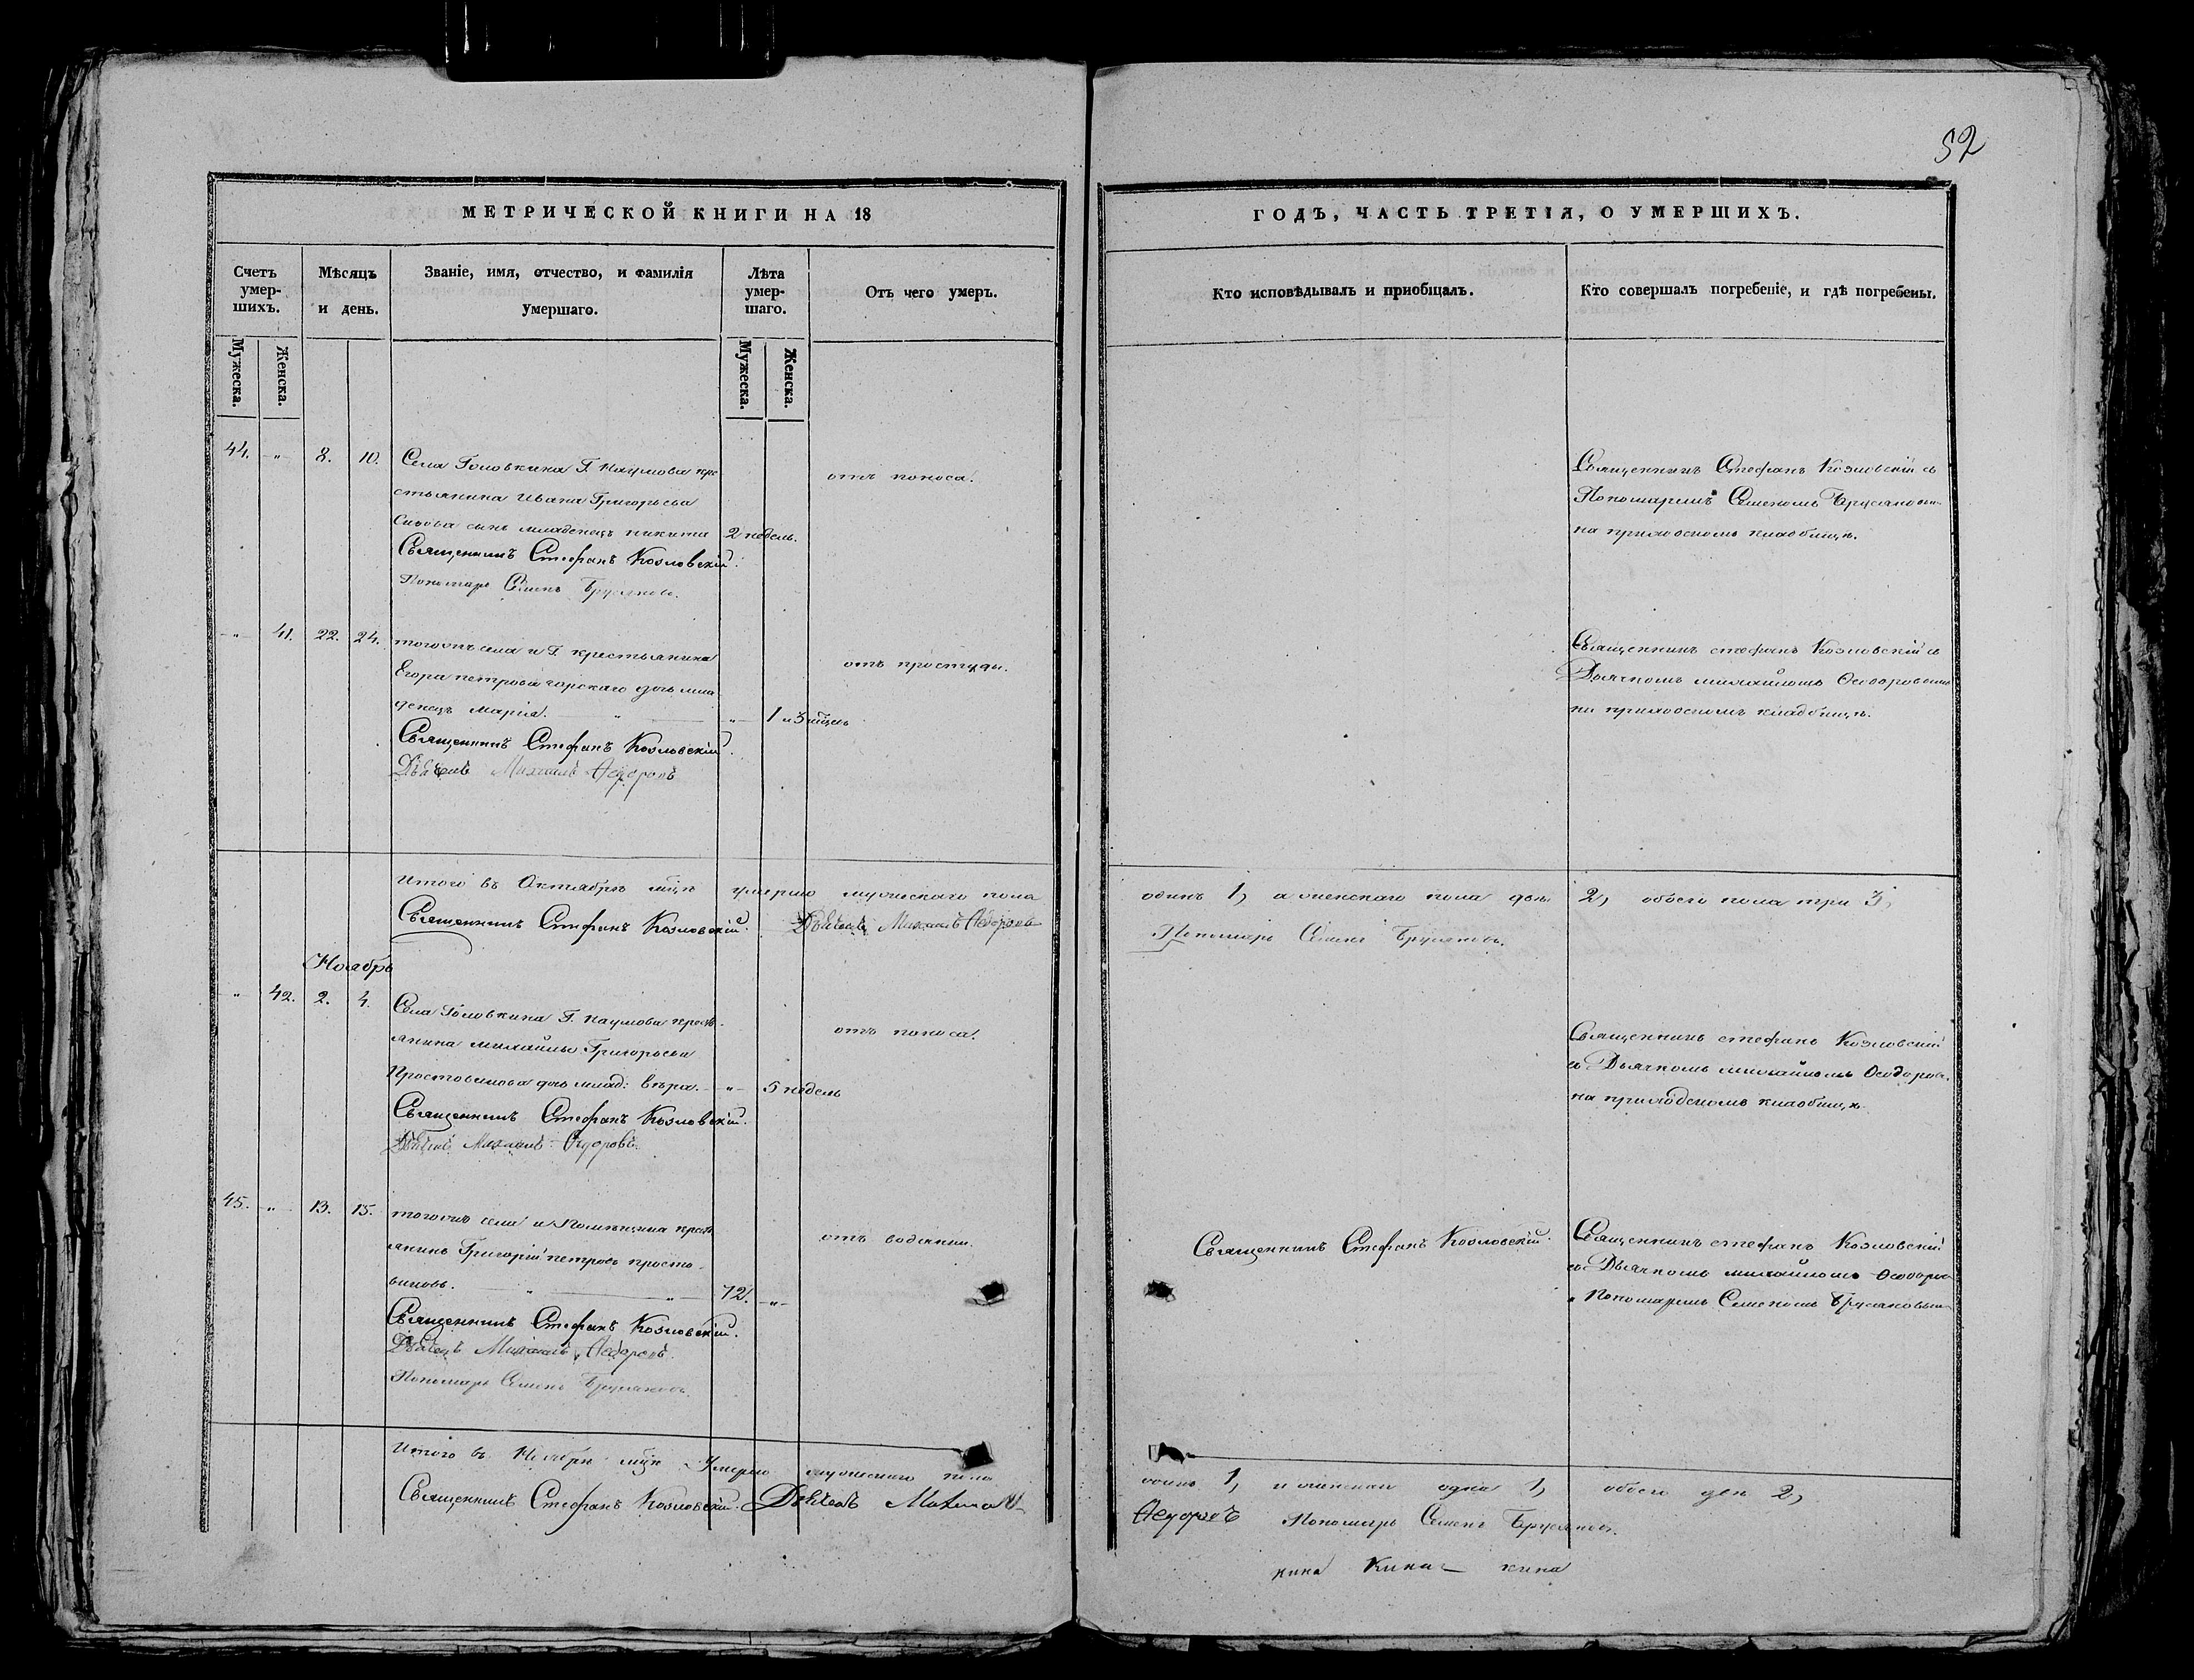 52
МЕТРИЧЕСКОЙ КНИГИ НА 18
Счетъ умер-шихъ.
Мѣсяцъ и день.
Званіе, имя, отчество, и фамилія умершаго.
Лѣта умер-шаго.
Отъ чего умеръ.
Мужеска.
Женска.
Мужеска.
Женска.
44. " 8. 10.
Села Головкина Г. Наумова кре
стьянина Ивана Григорьева
сынъ младенецъ никита 2 недель.
отъ поноса.
Священникъ Стефанъ Козловскій.
Пономарь Семенъ Брусяновъ.
" 41. 22. 24.
тогожъ села и Г. крестьянина
Егора петрова горскаго дочь мла
денецъ Марія. " " 1 и
отъ простуды.
Священникъ Стефанъ Козловскій.
Дьячекъ Михаилъ Ѳедоровъ
Итого въ Октябрѣ мцѣ умерло мужескаго пола
Священникъ Стефанъ Козловскій. Дьячекъ Михаилъ Ѳедоровъ
Ноябрь
" 42. 2. 4.
Села Головкина Г. Наумова кресть
янина михайлы Григорьева
Простовикова дочь млад: вѣра. " 5 недель
отъ поноса.
Священникъ Стефанъ Козловскій.
Дьячекъ Михаилъ Ѳедоровъ.
45. " 13. 15.
тогожъ села и Помѣщика кресть
янинъ Григорій петровъ просто-
виковъ. " " 72. "
отъ водянки.
Священникъ Стефанъ Козловскій.
Дьячекъ Михаилъ Ѳедоровъ.
Пономарь Семенъ Брусяновъ.
Итого въ Ноябрѣ мцѣ Умерло мужескаго пола
Священникъ Стефанъ Козловскій. Дьячекъ Михаилъ
ГОДЪ, ЧАСТЬ ТРЕТІЯ, О УМЕРШИХЪ.
Кто исповѣдывалъ и пріобщалъ.
Кто совершалъ погребеніе, и гдѣ погребены.
Священникъ Стефанъ Козловскій съ
Пономаремъ Семеномъ Брусяновымъ
на приходскомъ кладбищѣ.
Священникъ стефанъ Козловскій съ
Дьячкомъ михайломъ Ѳеодоровымъ
на приходскомъ кладбищѣ.
одинъ 1, а женскаго пола двѣ 2, обоего пола три 3,
Пономарь Семенъ Брусяновъ.
Священникъ стефанъ Козловскій
съ Дьячкомъ михайломъ Ѳеодоров.
на приходскомъ кладбищѣ
Священникъ Стефанъ Козловскій.
Священникъ стефанъ Козловскій
съ Дьячкомъ михайломъ Ѳеодоров
и Пономаремъ Семеномъ Брусяновым
одинъ 1, и женскаго одна 1, обоего два 2,
Ѳедоровъ Пономарь Семенъ Брусяновъ.
кина кина кина